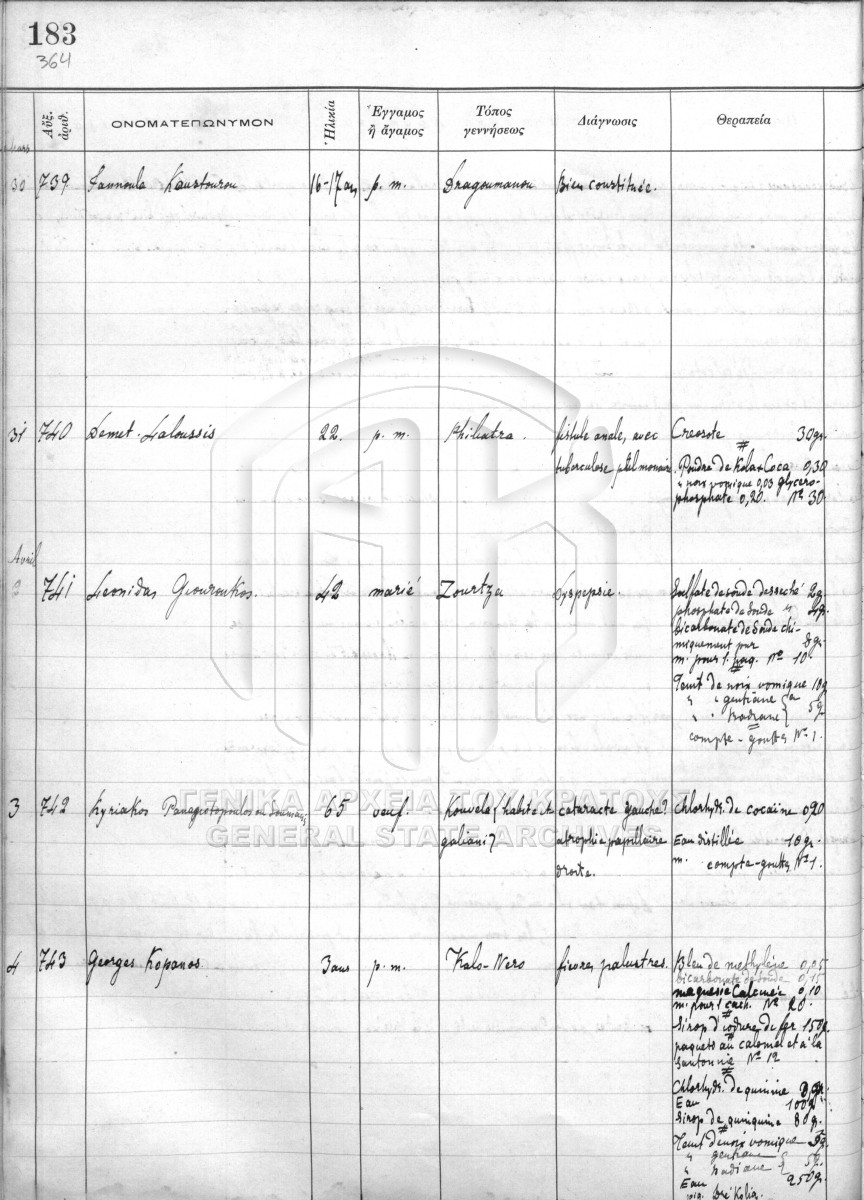 183
364
Αὔξ. ἀριθ.
ΟΝΟΜΑΤΕΠΩΝΥΜΟΝ
Ἡλικία
Ἔγγαμος
ἢ ἄγαμος
Τόπος
γεννήσεως
Διάγνωσις
Θεραπεία
30 739 Kaustourou 16-17 ans p. m. Dragoumanou Bien constituée.
31 740 Demet. Laloussis 22. p. m. Philiatra. fistule anale, avec
tuberculose pulmonaire
Creosote 30 gr.
Poudre de Kola & Coca 0,30
" noix vomique 0,03 glycero-
phosphate 0,20. Nº 30.
Avril
2 741 Leonidas Gouroukos. 42 marié Zourtza Dyspepsie.
Sulfate de soude desseché 2g.
phosphate de soude " 4g.
bicarbonate de soude chi-
miquement pur 8gr.
m. pour 1. paq. Nº 10
Teint de noix vomique 10g
" " gentiane
" " badiane 5g.
compte-gouttes Nº 1.
3 742 Kyriakos Panagiotopoulos ou 65 veuf. Kouvela (habite à
galiani)
cataracte gauche?
atrophie papillaire
droite.
Chlorhydr. de cocaïne 0,20
Eau distillée 10 gr.
m. compte-gouttes Nº 1.
ΓΕΝΙΚΑ ΑΡΧΕΙΑ ΤΟΥ ΚΡΑΤΟΥΣ
GENERAL STATE ARCHIVES
4 743 Georges Kopanos 3 ans p. m. Kalo-Nero fievres palustres.
Bleu de methylène 0,05
bicarbonate de soude 0,15
magnesie Calcinée 0,10
m. pour 1 cach. Nº 20
Sirop d'iodure de fer 150g.
paquets au calomel et à la
santonine Nº 12
Chlorhydr. de quinine
Eau 100g
Sirop de quinquina 80g.
Teint de noix vomique 5g.
" gentiane
" badiane 5g.
Eau 250g.